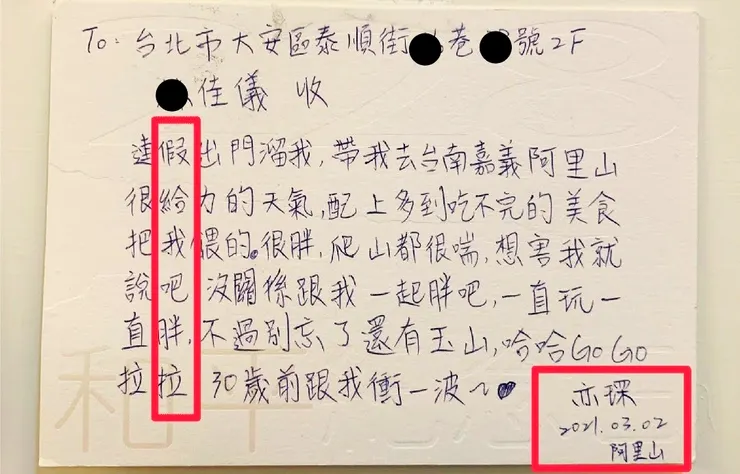 To: 台北市大安區泰順街 巷 號2F
佳儀 收
連假出門溜我,帶我去台南嘉義阿里山
很給力的天氣,配上多到吃不完的美食
把我餵的很胖,爬山都很喘,想害我就
說吧 沒關係跟我一起胖吧,一直玩一
直胖,不過別忘了還有玉山,哈哈GOGO
拉拉 30歲前跟我衝一波~
亦琛
2021.03.02
阿里山
和平